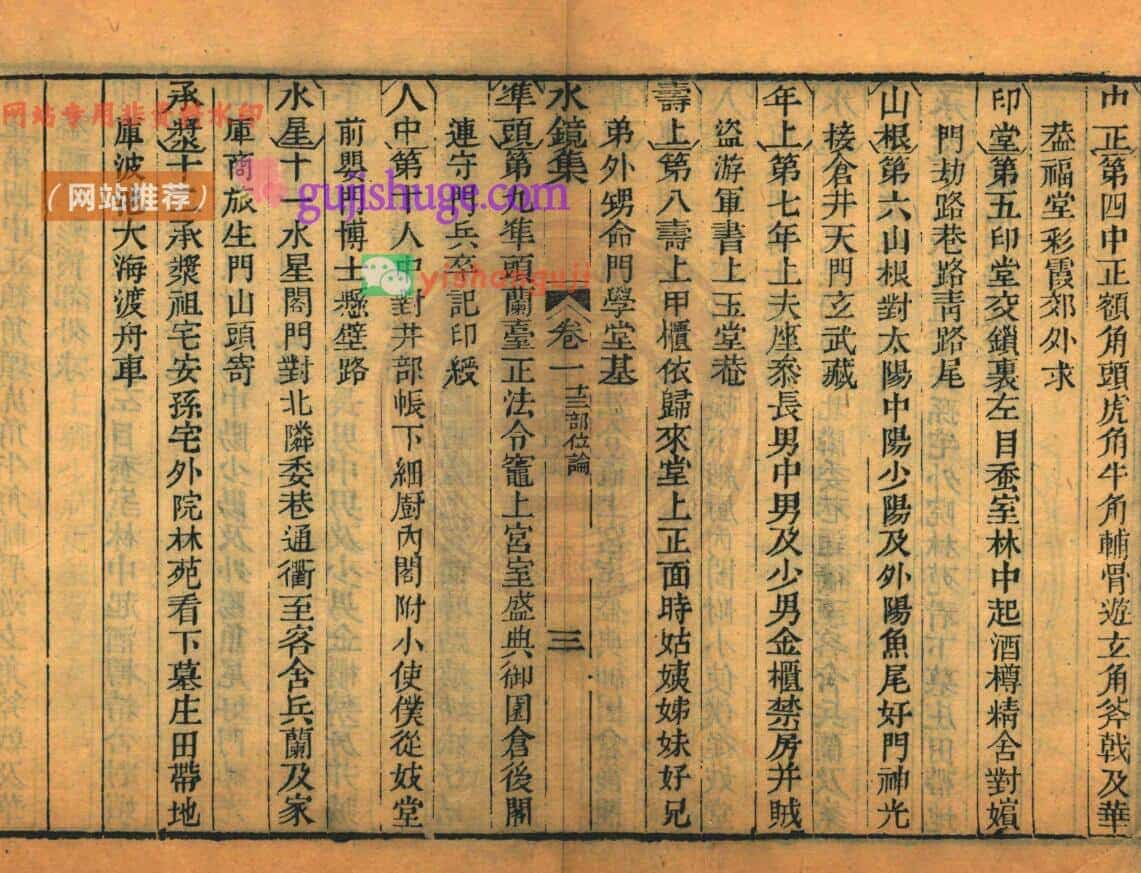 中正第四中正額角頭虎角牛角輔骨遊玄角斧戟及華
葢福堂彩霞郊外求
印堂第五印堂交鎖裏左目蚕室林中起酒樽精舍對嬪
門劫路巷路靑路尾
山根第六山根對太陽中陽少陽及外陽魚尾好門神光
接倉井天門玄武藏
年上第七年上夫座叅長男中男及少男金櫃禁房并賊
盜游軍書上玉堂菴
壽上第八壽上甲櫃依歸來堂上正面時姑姨姊妹好兄
弟外甥命門學堂基
水鏡集 卷一 十三部位論 三
準頭第九準頭蘭臺正法令竈上宮室盛典御園倉後閣
連守門兵卒記印綬
人中第十人中對井部帳下細廚內閣附小使僕從妓堂
前嬰門博士懸壁路
水星十一水星閣門對北隣委巷通衢至客舍兵蘭及家
庫商旅生門山頭寄
承漿十二承漿祖宅安孫宅外院林苑看下墓庄田帶地
庫波池大海渡舟車
网站专用非卖品水印
(网站推荐)
gujishuge.com
yishanguji